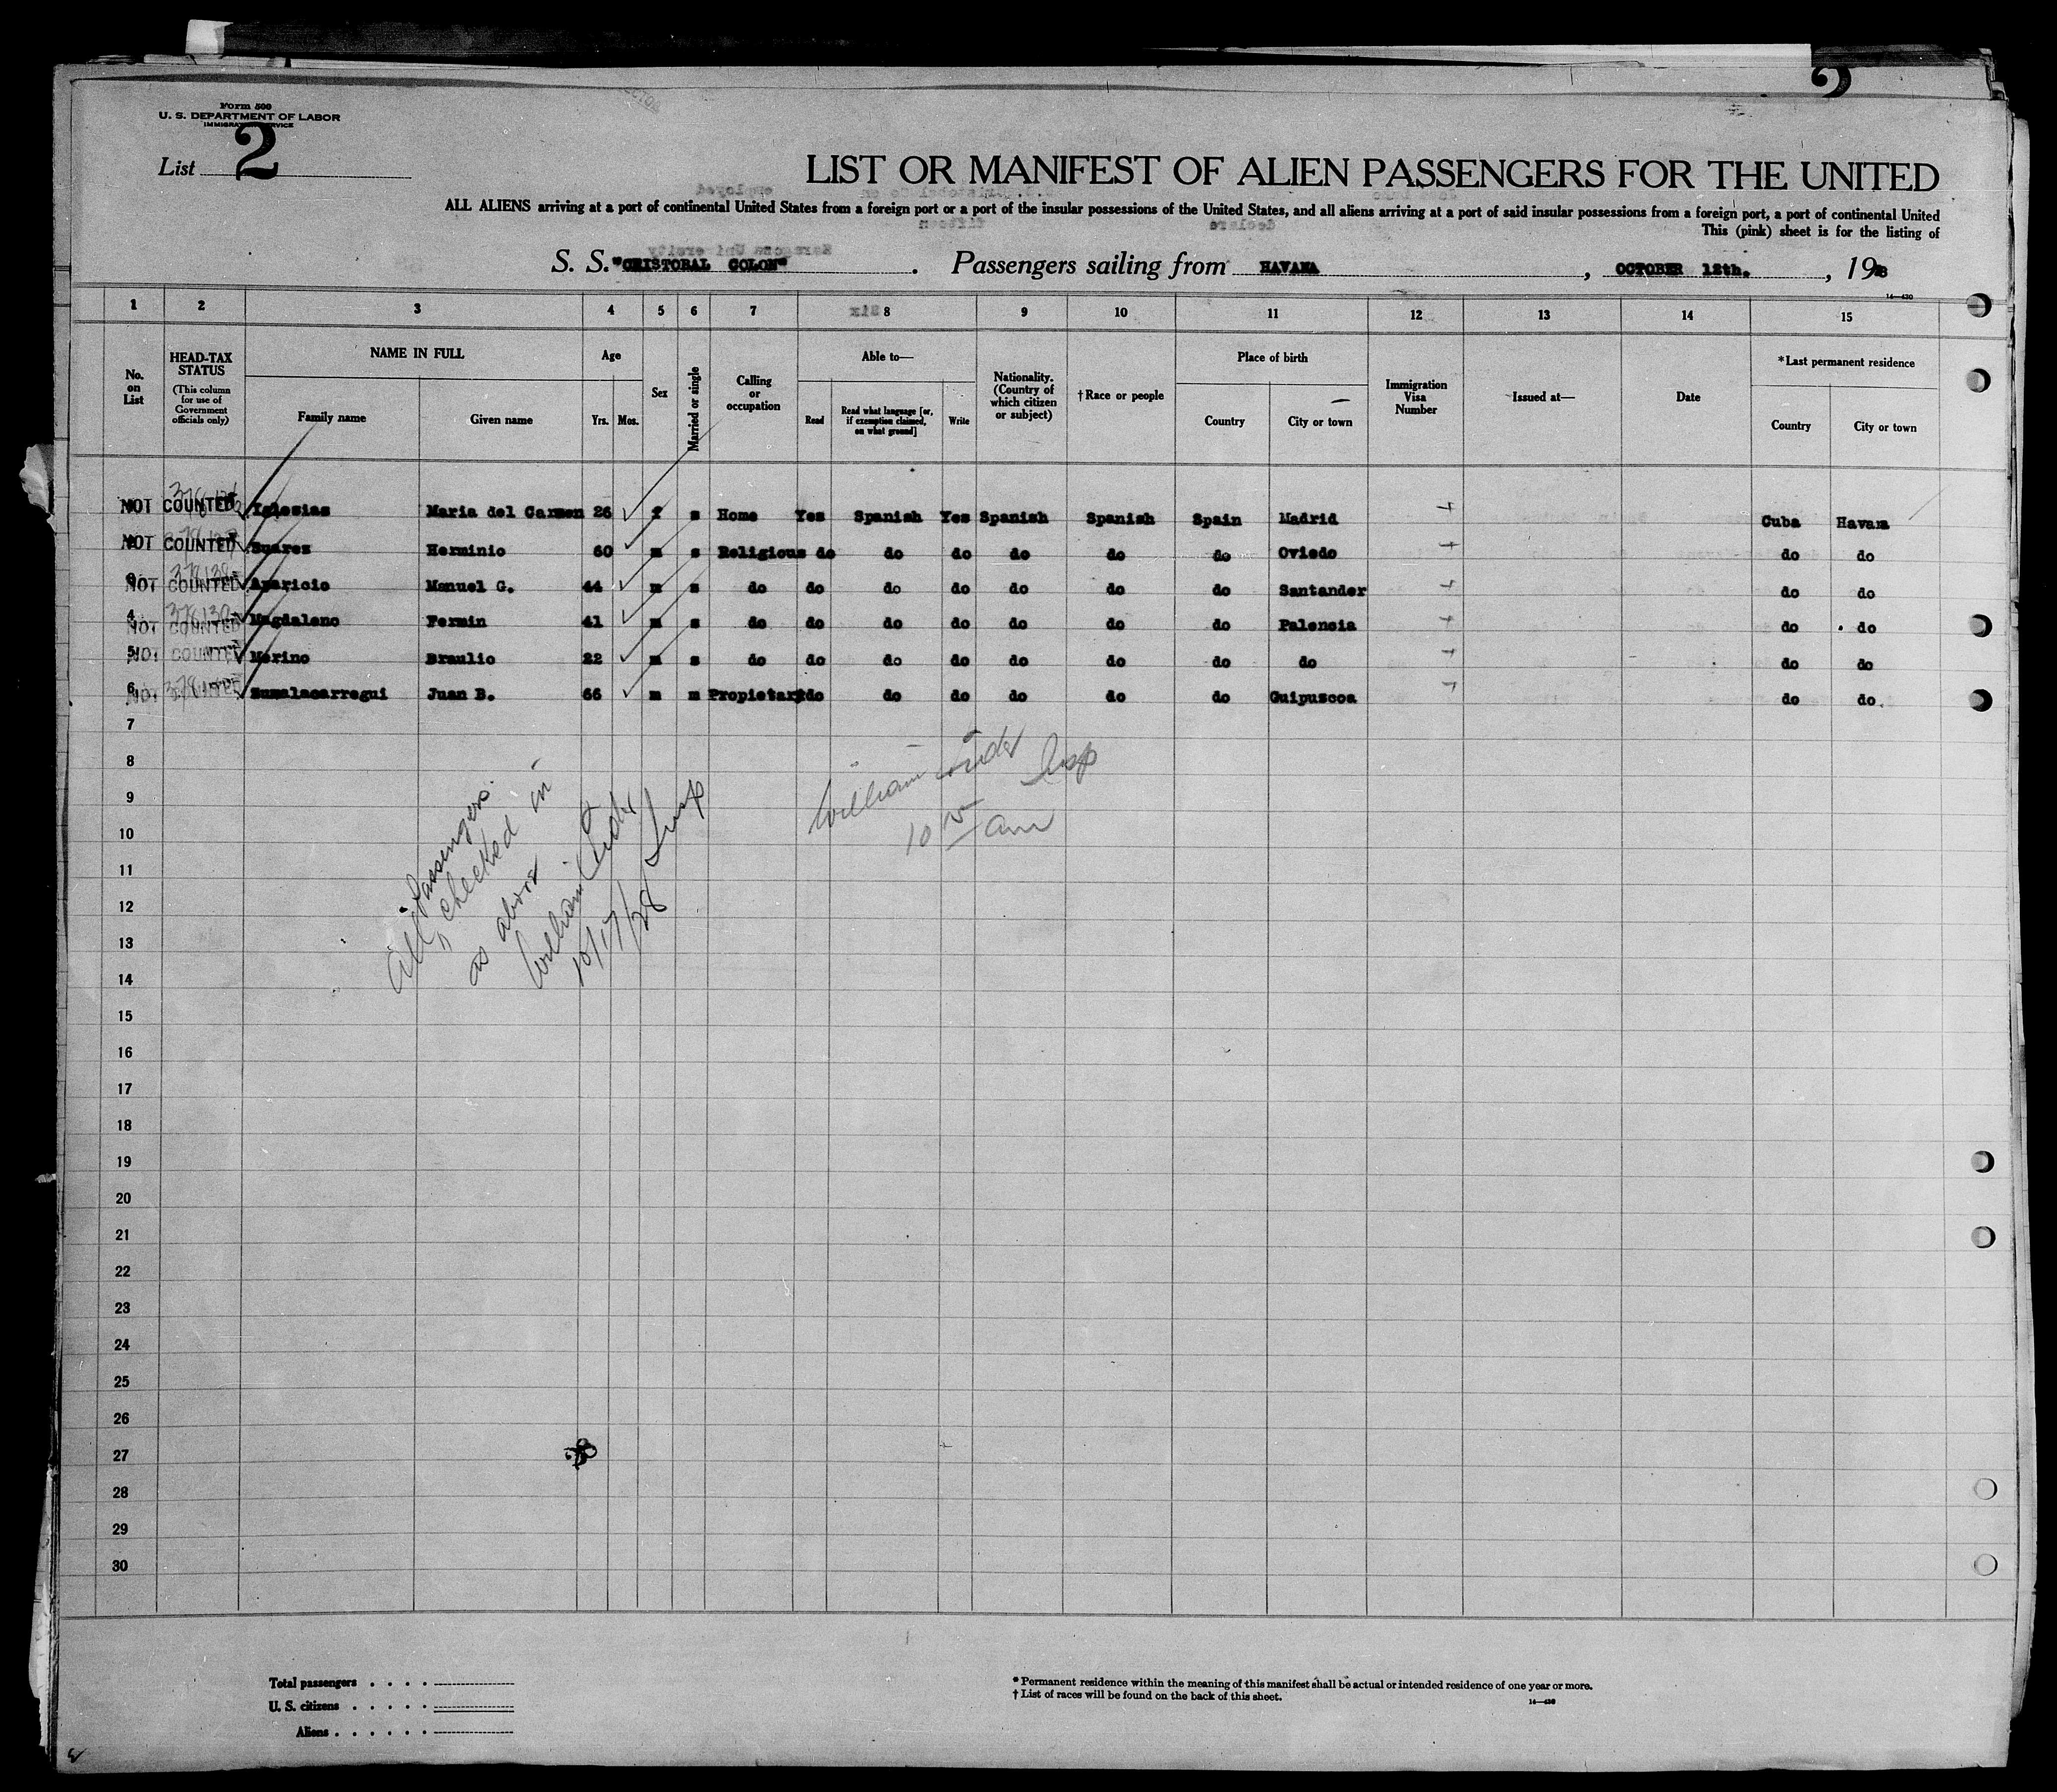 Form 500
U. S. DEPARTMENT OF LABOR
IMMIGRATION SERVICE
List 2
LIST OR MANIFEST OF ALIEN PASSENGERS FOR THE UNITED
ALL ALIENS arriving at a port of continental United States from a foreign port or a port of the insular possessions of the United States, and all aliens arriving at a port of said insular possessions from a foreign port, a port of continental United
This (pink) sheet is for the listing of
S. S. "CRISTOBAL COLON". Passengers sailing from HAVANA, OCTOBER 12th., 1928
14—430
1 2 3 4 5 6 7 8 9 10 11 12 13 14 15
No. on List
HEAD-TAX STATUS (This column for use of Government officials only)
NAME IN FULL
Family name Given name
Age
Yrs. Mos.
Sex
Married or single
Calling or occupation
Able to—
Read Read what language [or, if exemption claimed, on what ground] Write
Nationality. (Country of which citizen or subject)
†Race or people
Place of birth
Country City or town
Immigration Visa Number
Issued at—
Date
*Last permanent residence
Country City or town
NOT COUNTED Iglesias Maria del Carmen 26 f s Home Yes Spanish Yes Spanish Spanish Spain Madrid Cuba Havana
NOT COUNTED Suarez Herminio 60 m s Religious do do do do do do Oviedo do do
NOT COUNTED Aparicio Manuel G. 44 m s do do do do do do do Santander do do
4 NOT COUNTED Magdaleno Fermin 41 m s do do do do do do do Palencia do do
5 NOT COUNTED Merino Braulio 22 m s do do do do do do do do do do
6 NOT Zumalacarregui Juan B. 66 m m Propietari do do do do do do Guipuscoa do do
7
8
9
10
11
12
13
14
15
16
17
18
19
20
21
22
23
24
25
26
27
28
29
30
All Passengers
checked in
as above
William
10/17/28 Insp
William Insp
10 15 am
Total passengers
U. S. citizens
Aliens
* Permanent residence within the meaning of this manifest shall be actual or intended residence of one year or more.
† List of races will be found on the back of this sheet.
14—430